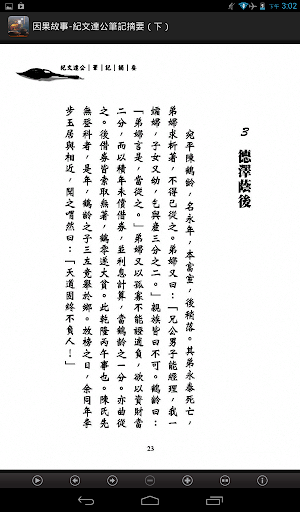 下午 3:02
因果故事-紀文達公筆記摘要（下）
紀文達公｜筆｜記｜摘｜要
3 德澤蔭後
宛平陳鶴齡，名永年，本富室，後稍落。其弟永泰死亡，
弟婦求析著，不得已從之。弟婦又曰：「兄公男子能經理，我一
孀婦，子女又幼，乞與產三分之二。」親族皆曰不可。鶴齡曰：
「弟婦言是，當從之。」弟婦又以孤寡不能證逋負，欲以資財當
二分，而以積年未償借券，並利息計算，當鶴齡之一分。亦曲從
之。後借券皆索取無著，鶴零遂大貧。此乾隆丙午事也。陳氏先
無登科者，是年，鶴齡之子三立竟舉於鄉。放榜之日，余同年李
步玉居與相近，聞之喟然曰：「天道固終不負人！」
23